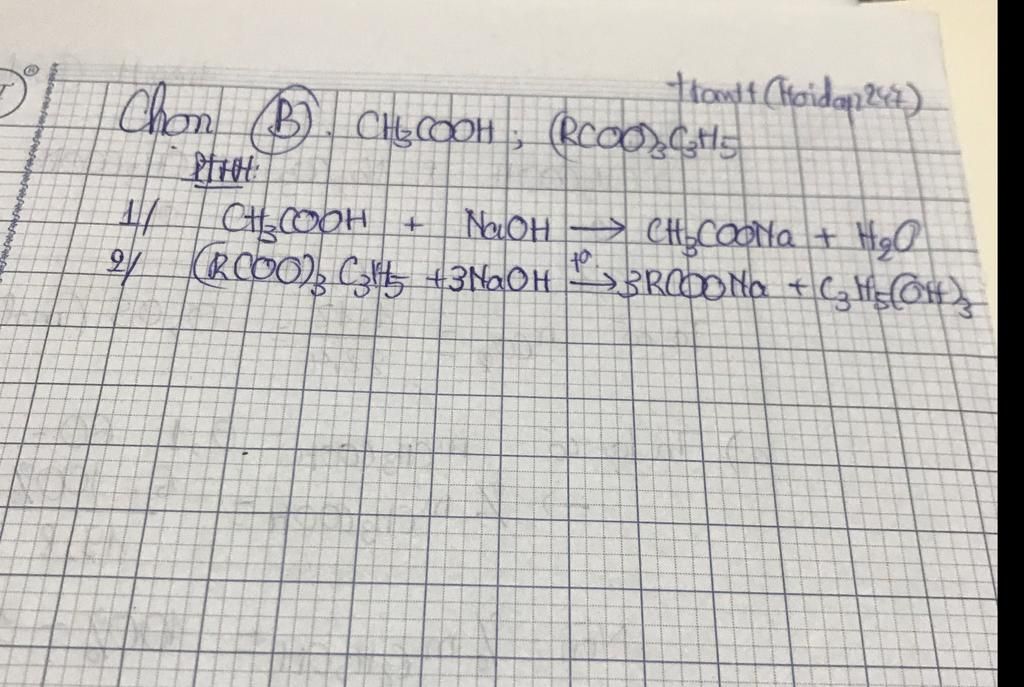 ttamtt (Hoidap247)
Chọn (B). CH3COOH ; (RCOO)3C3H5
PTHH:
1/ CH3COOH + NaOH → CH3COONa + H2O
2/ (RCOO)3C3H5 + 3NaOH t° → 3RCOONa + C3H5(OH)3